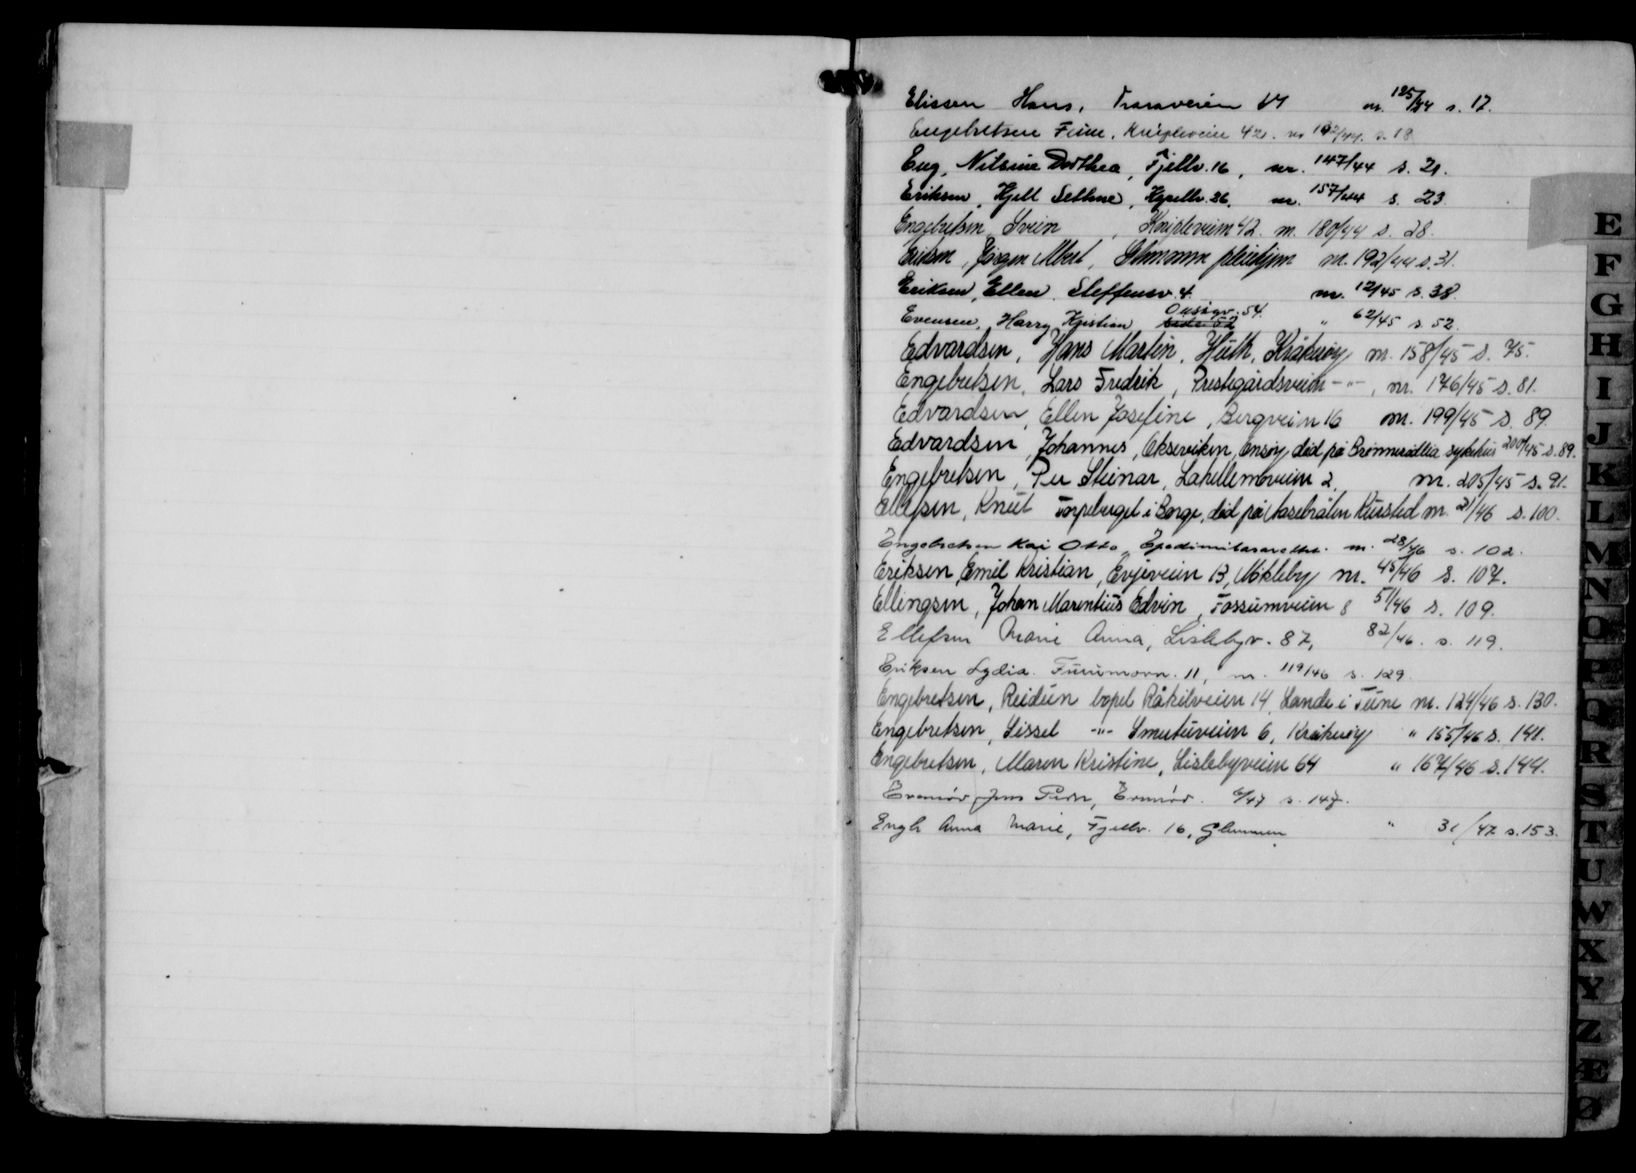 Elissen Hans, Traraveien 44 nr. 125/44 s. 17.
Engebretsen Finn, Knipleveien 42. nr 132/44. s. 18
Eng, Nilsine Dorthea, Fjellv. 16, nr. 147/44 s. 21.
Eriksen, Kjell Sethne, Kapellv. 26. nr. 157/44 s. 23.
Engebretsen, Svein, Knipleveien 42. nr. 180/44 s. 28.
Eriksen, Jørgen Albert, Glemmen pleiehjem nr. 192/44 s. 31.
Eriksen, Ellen. Steffensv. 4. nr. 12/45 s. 38.
Evensen, Harry Kristian Ousigv. 54. " 62/45 s. 52.
Edvardsen, Hans Martin, Huth, Kråkerøy nr. 158/45 s. 75.
Engebretsen, Lars Fredrik, Prestegårdsveien -"-, nr. 176/45 s. 81.
Edvardsen, Ellen Josefine, Bergveien 16 nr. 199/45 s. 89.
Edvardsen, Johannes, Okserviken, Onsøy død på sykehus 200/45 s. 89.
Engebretsen, Per Steinar, Lahellemoveien 2, nr. 205/45 s. 91.
Ellefsen, Knut Torpeberget i Borge, død på Kursted nr. 21/46 s. 100.
Engebretsen Kai Otto, Epedimilasarettet. nr. 28/46 s. 102.
Eriksen, Emil Kristian, Evjeveien 13, Mökleby nr. 45/46 s. 107.
Ellingsen, Johan Marentius Edvin, Fossumveien 8 51/46 s. 109.
Ellefsen Marie Anna, Lislebyv. 87, 82/46. s. 119.
Eriksen Lydia. Furumovn. 11, nr. 119/46 s. 129.
Engebretsen, Reidun bopel Råkilveien 14, Lande i Tune nr. 124/46 s. 130.
Engebretsen, Sissel -"- Smutuveien 6, Kråkerøy " 155/46 s. 141.
Engebretsen, Maren Kristine, Lislebyveien 64 " 167/46 s. 144.
Evenrød Jens Peder, Evenrød. 6/47 s. 147.
Engh Anna Marie, Fjellv. 16, Glemmen " 31/47 s. 153.
E
F
G
H
I
J
K
L
M
N
O
P
Q
R
S
T
U
W
X
Y
Z
Æ
Ø